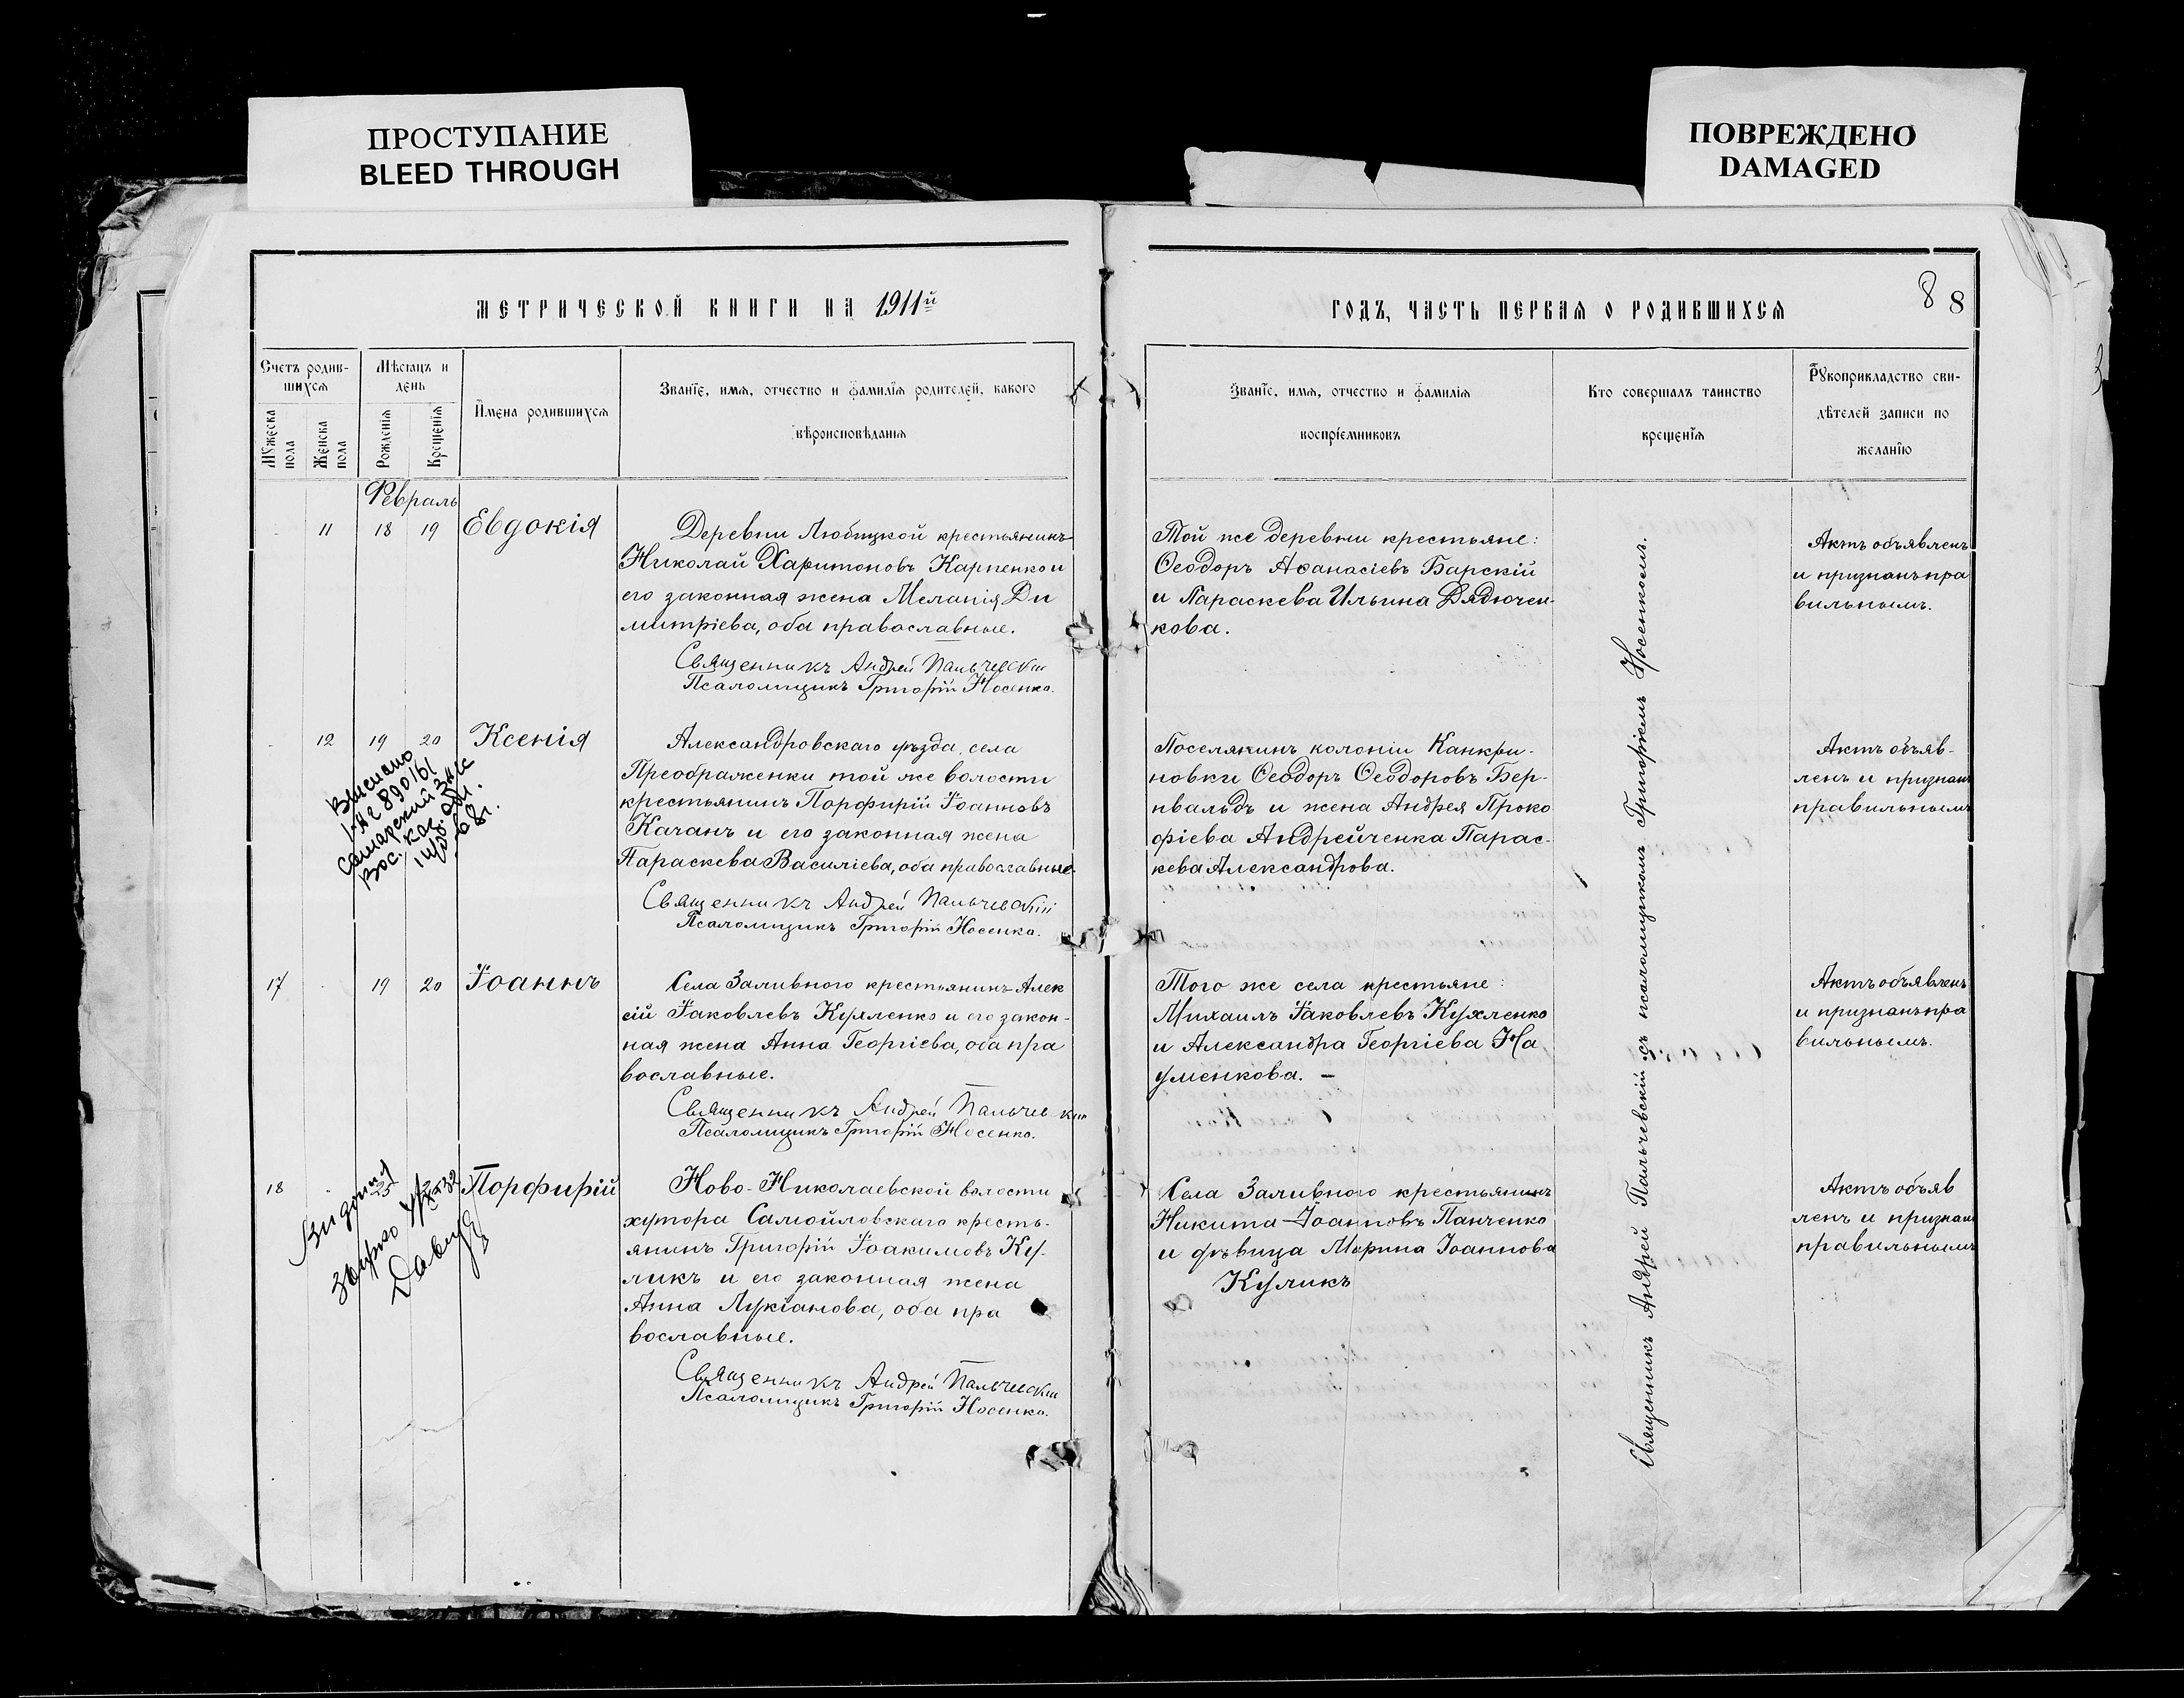 ПРОСТУПАНИЕ
BLEED THROUGH
ПОВРЕЖДЕНО
DAMAGED
МЕТРИЧЕСКОЙ КНИГИ НА 1911й
Счетъ родив-
шихся
Мѣсяцъ и
день
Мужеска
пола
Женска
пола
Рожденія
Крещенія
Имена родившихся
Званіе, имя, отчество и фамилія родителей, какого
вѣроисповѣданія
Февраль
11 18 19 Евдокія
Деревни Любицкой крестьянинъ
Николай Харитоновъ Карпенко и
его законная жена Меланія Ди
митріева, оба православные.
Священникъ Андрей Пальчевскій
Псаломщикъ Григорій Носенко.
12 19 20 Ксенія
Александровскаго уѣзда, села
Преображенки той же волости
крестьянинъ Порфирій Іоанновъ
Качанъ и его законная жена
Параскева Василіева, оба православные.
Священникъ Андрей Пальчевскій
Псаломщикъ Григорій Носенко.
Самарский ЗАГС
Вос. Каз. обл.
17 19 20 Іоаннъ
Села Заливного крестьянинъ Алек
сій Іаковлевъ Кухленко и его закон-
ная жена Анна Георгіева, оба пра
вославные.
Священникъ Андрей Пальчевскій
Псаломщикъ Григорій Носенко.
18 25 Порфирій
Ново-Николаевской волости
хутора Самойловскаго кресть-
янинъ Григорій Іоакимовъ Ку-
ликъ и его законная жена
Анна Лукіанова, оба пра
вославные.
Священникъ Андрей Пальчевскій
Псаломщикъ Григорій Носенко.
ГОДЪ, ЧАСТЬ ПЕРВАЯ О РОДИВШИХСЯ
8 8
Званіе, имя, отчество и фамилія
воспріемниковъ
Кто совершалъ таинство
крещенія
Рукоприкладство сви-
дѣтелей записи по
желанію
Той же деревни крестьяне:
Ѳеодоръ Аѳанасіевъ Барскій
и Параскева Ильина Дядючен-
кова.
Актъ объявленъ
и признанъ пра
вильнымъ.
Поселянинъ колоніи Канкри-
новки Ѳеодоръ Ѳеодоровъ Бер-
нвальдъ и жена Андрея Проко
фіева Андрейченка Парас-
кева Александрова.
Актъ объяв-
ленъ и признан
правильнымъ
Того же села крестьяне:
Михаилъ Іаковлевъ Кухленко
и Александра Георгіева На
уменкова. –
Актъ объявленъ
и признанъ пра
вильнымъ.
Села Заливного крестьянинъ
Никита Іоанновъ Панченко
и дѣвица Марина Іоаннова
Куликъ
Актъ объяв
ленъ и признан
правильнымъ
Священникъ Андрей Пальчевскій съ псаломщикомъ Григоріемъ Носенкомъ.